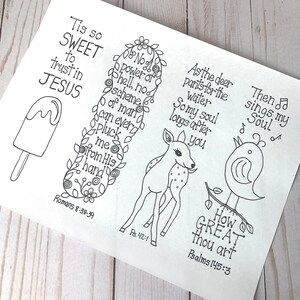 Tis so
SWEET
to
trust in
JESUS
No
power of
hell, no
scheme
of man,
can ever
pluck
me
from His
hand
Romans 8:38-39
As the deer
pants for the
water
So my soul
longs after
you
Ps. 42:1
Then
sings my
Soul
How
GREAT
thou art
Psalms 145:3